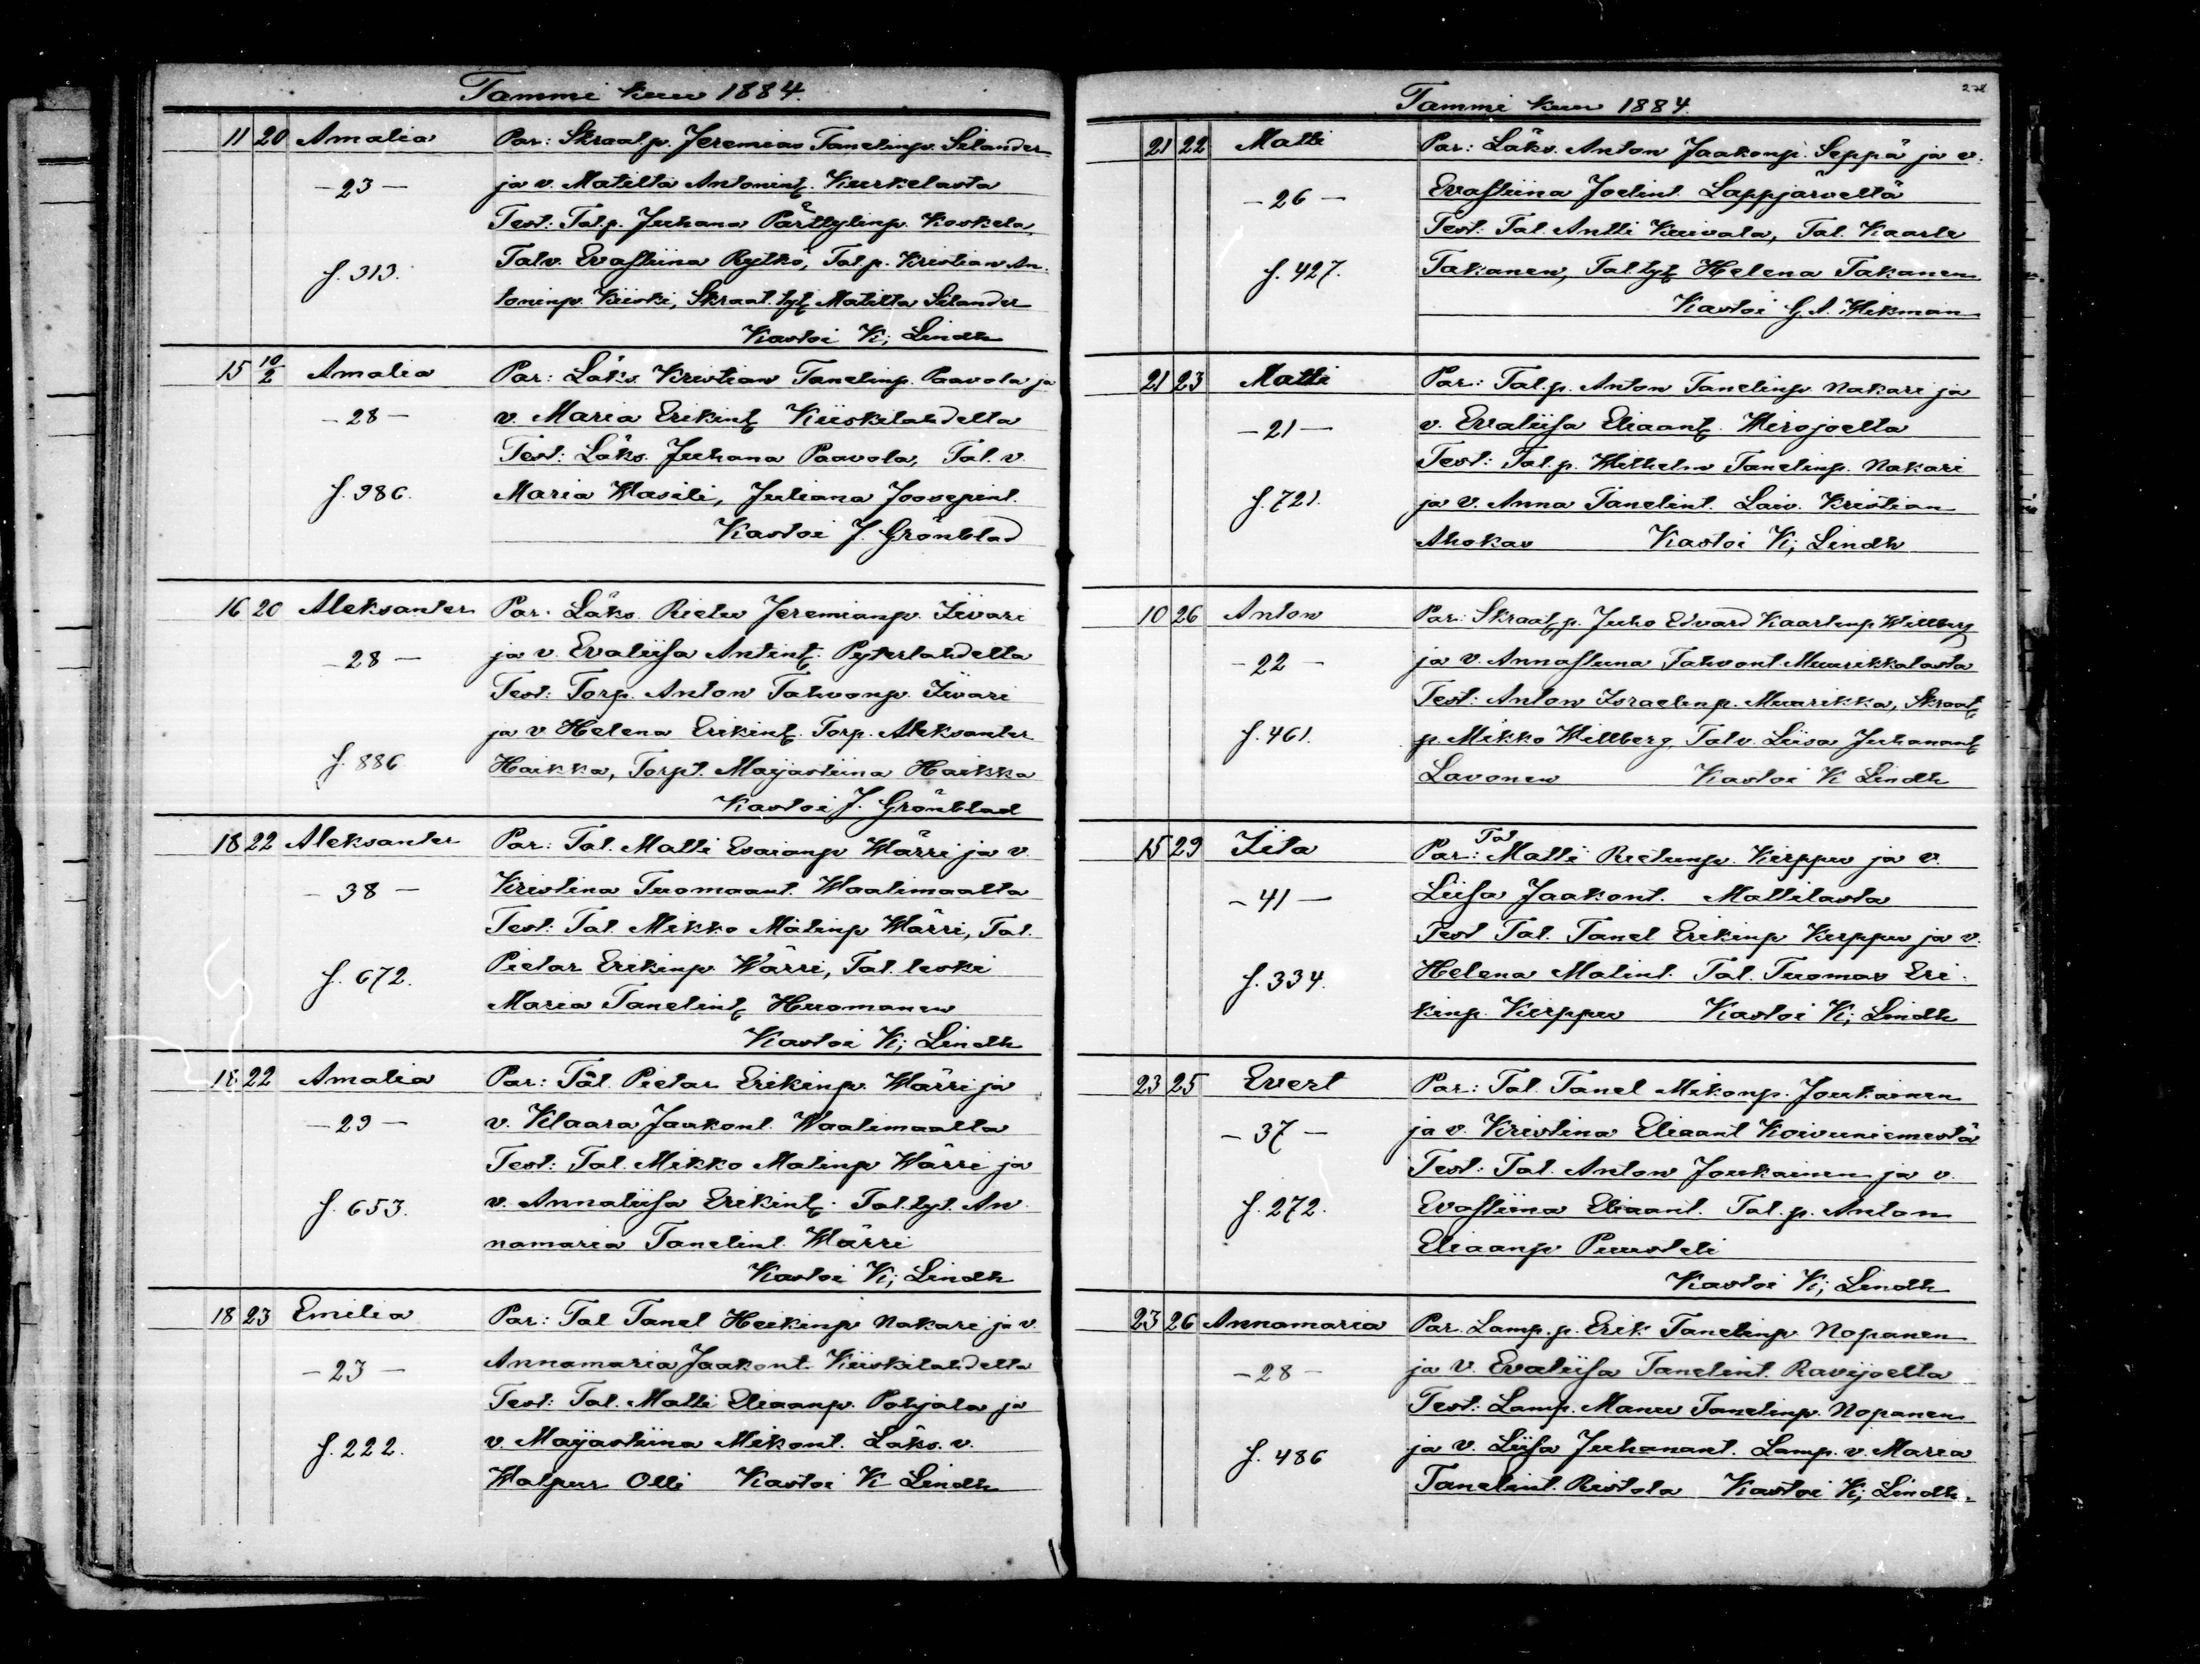 Tammi kuu 1884.
11 20 Amalia Par: Skraat.p. Jeremias Tanelinp. Silander
- 23 - ja v. Matilta Antonint. Kurkelasta
Test: Tal.p. Juhana Pärttylinp. Koskela,
Talv. Evastiina Rytkö, Tal.p. Kristian An-
f. 313. toninp. Kiiski, Skraat. tyt. Matilta Silander
Kastoi K; Lindh
15 10/2 Amalia Par: Läks. Kristian Tanelinp. Paavola ja
- 28 - v. Maria Erikint. Kiiskilahdelta
Test: Läks. Juhana Paavola, Tal. v.
f. 986. Maria Wasili, Juliana Joosepint.
Kastoi J. Grönblad
16 20 Aleksanter Par. Läks. Rietu Jeremianp. Iivari
- 28 - ja v. Evaliisa Antint. Pyterlahdelta
Test: Torp. Anton Tahvonp. Iivari
ja v Helena Erikint. Torp. Aleksanter
f. 886 Haikka, Torpt. Maijastiina Haikka
Kastoi J. Grönblad
18 22 Aleksanter Par: Tal. Matti Esaianp Wärri ja v.
- 38 - Kristina Tuomaant. Waalimaalta
Test: Tal. Mikko Matinp Wärri, Tal.
f. 672. Pietar Erikinp. Wärri, Tal. leski
Maria Tanelint. Huomanen
Kastoi K; Lindh
18 22 Amalia Par: Tal. Pietar Erikinp. Wärri ja
- 29 - v. Klaara Jaakont. Waalimaalta
Test: Tal. Mikko Matinp Wärri ja
f. 653. v. Annaliisa Erikint. Tal. tyt. An-
namaria Tanelint. Wärri
Kastoi K; Lindh
18 23 Emilia Par: Tal Tanel Heikinp Nakari ja v.
- 23 - Annamaria Jaakont. Kiiskilahdelta
Test: Tal. Matti Eliaanp. Pohjala ja
f. 222. v. Maijastiina Mikont. Läks. v.
Walpur Olli Kastoi K Lindh
Tammi kuu 1884.
21 22 Matti Par: Läks. Anton Jaakonp. Seppä ja v.
- 26 - Evastiina Joelint. Lappjärveltä
Test: Tal. Antti Kuivala, Tal. Kaarle
f. 427. Takanen, Tal tyt. Helena Takanen
Kastoi G. A. Wikman
21 23 Matti Par: Tal.p. Anton Tanelinp Nakari ja
- 21 - v. Evaliisa Eliaant. Wirojoelta
Test: Tal.p. Wilhelm Tanelinp. Nakari
f. 721. ja v. Anna Tanelint. Laiv. Kristian
Ahokas Kastoi K; Lindh
10 26 Anton Par: Skraat.p. Juho Edvard Kaarlenp Willberg
- 22 - ja v. Annastiina Tahvont Muurikkalasta
Test: Anton Israelinp. Muurikka, Skraat.
f. 461. p. Mikko Willberg, Talv. Liisa Juhanant.
Lavonen Kastoi K Lindh
15 29 Iita Par: Tal Matti Rietunp. Kirppu ja v.
- 41 - Liisa Jaakont. Mattilasta
Test Tal. Tanel Erikinp Kirppu ja v.
f. 334. Helena Matint. Tal. Tuomas Eri-
kinp. Kirppu Kastoi K; Lindh
23 25 Evert Par: Tal. Tanel Mikonp. Joukainen
- 37 - ja v. Kristina Eliaant Koivuniemestä
Test: Tal. Anton Joukainen ja v.
f. 272. Evastiina Eliaant. Tal.p. Anton
Eliaanp Puusteli
Kastoi K; Lindh
23 26 Annamaria Par. Lamp.p. Erik Tanelinp Nopanen
- 28 - ja v. Evaliisa Tanelint. Ravijoelta
Test: Lamp. Manu Tanelinp. Nopanen
f. 486 ja v. Liisa Juhanant. Lamp. v. Maria
Tanelint. Ristola Kastoi K; Lindh